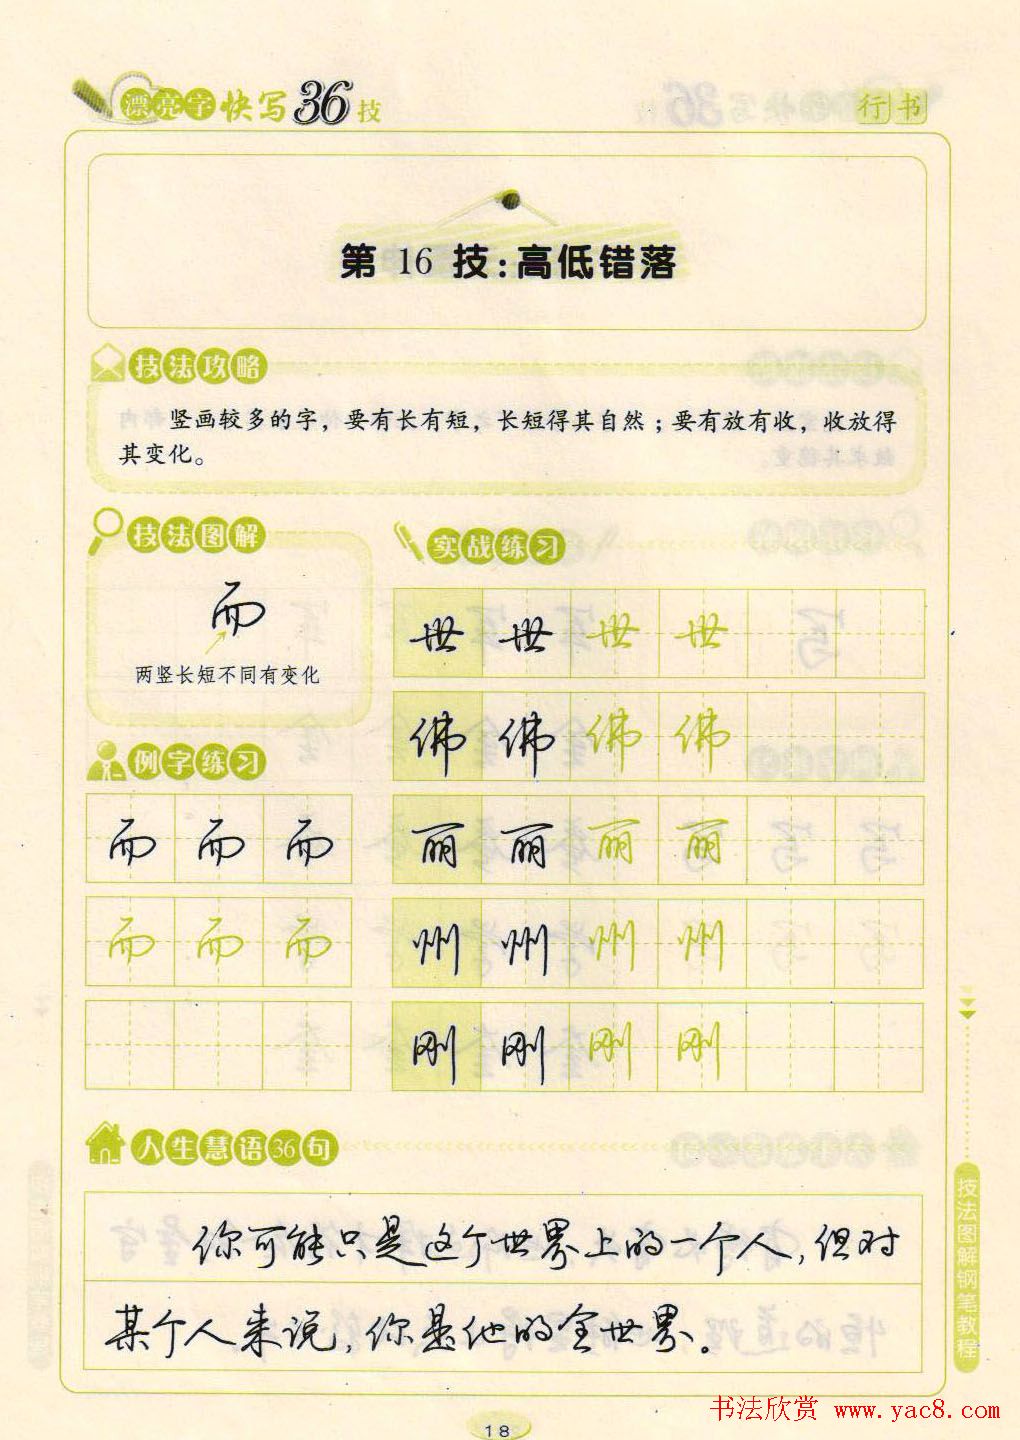 漂亮字快写36技
行书
第 16 技：高低错落
技法攻略
竖画较多的字，要有长有短，长短得其自然；要有放有收，收放得
其变化。
技法图解
而
两竖长短不同有变化
例字练习
而 而 而
而 而 而
实战练习
世 世 世 世
佛 佛 佛 佛
丽 丽 丽 丽
州 州 州 州
刚 刚 刚 刚
人生慧语36句
你可能只是这个世界上的一个人，但对
某个人来说，你是他的全世界。
技法图解钢笔教程
18
书法欣赏 www.yac8.com